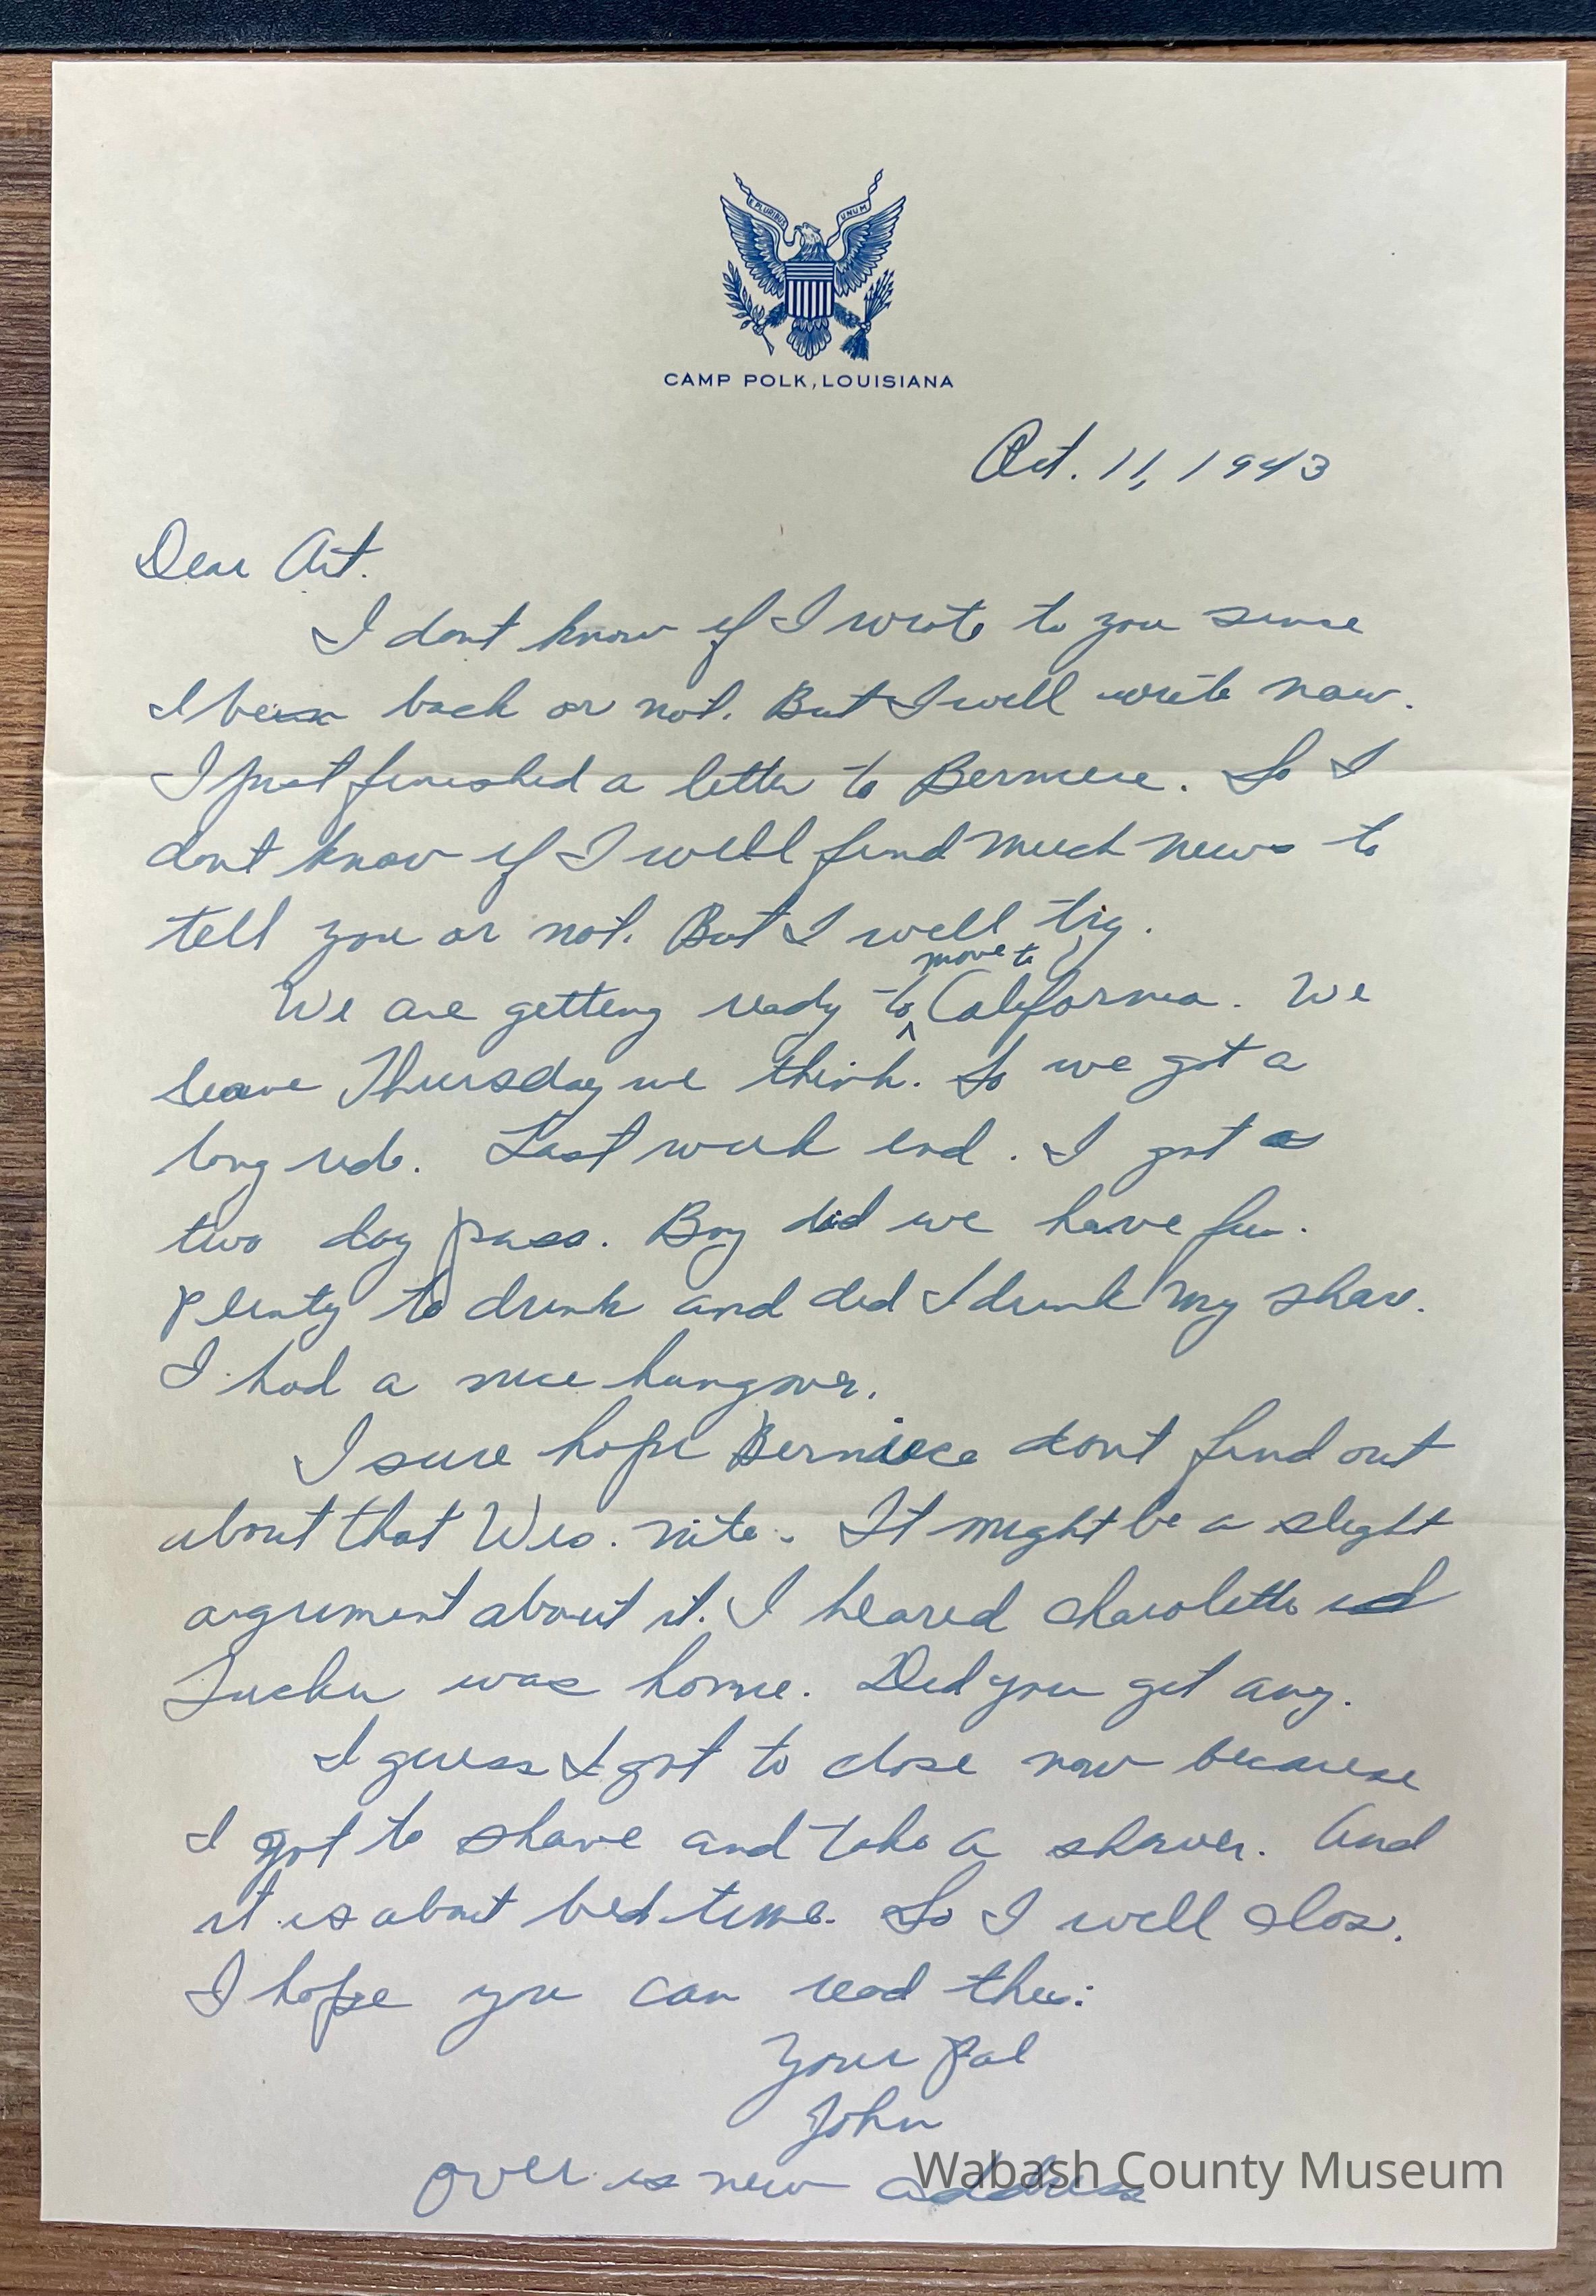 E PLURIBUS UNUM
CAMP POLK, LOUISIANA
Oct. 11, 1943
Dear Art.
I dont know if I wrote to you since
I been back or not. But I will write now.
I just finished a letter to Berniece. So I
dont know if I will find much news to
tell you or not. But I will try.
We are getting ready to move to California. We
leave Thursday we think. So we got a
long ride. Last week end. I got a
two day pass. Boy did we have fun.
Plenty to drink and did I drink my share.
I had a nice hangover.
I sure hope Berniece dont find out
about that Wis. nite. It might be a slight
argument about it. I heared Charolette
was home. Did you get any.
I guess I got to close now because
I got to shave and take a shower. And
it is about bed time. So I will clos.
I hope you can read this.
Your Pal
John
over is new address
Wabash County Museum